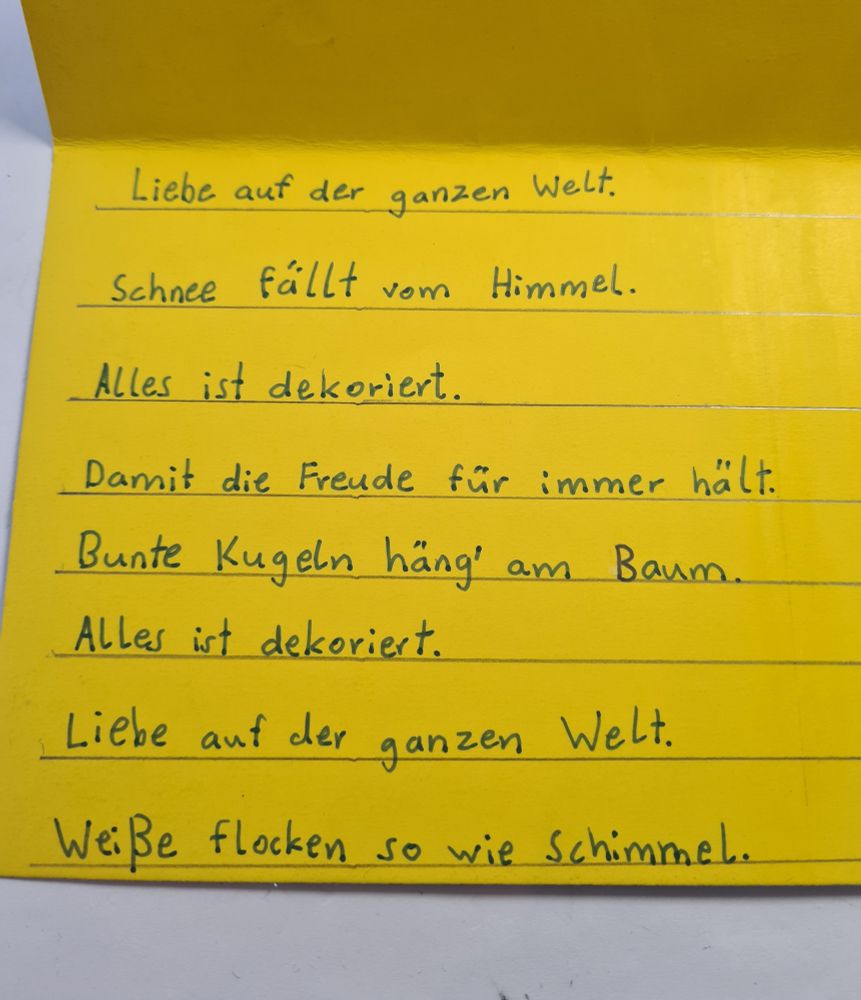 Liebe auf der ganzen Welt.
Schnee fällt vom Himmel.
Alles ist dekoriert.
Damit die Freude für immer hält.
Bunte Kugeln häng' am Baum.
Alles ist dekoriert.
Liebe auf der ganzen Welt.
Weiße flocken so wie Schimmel.